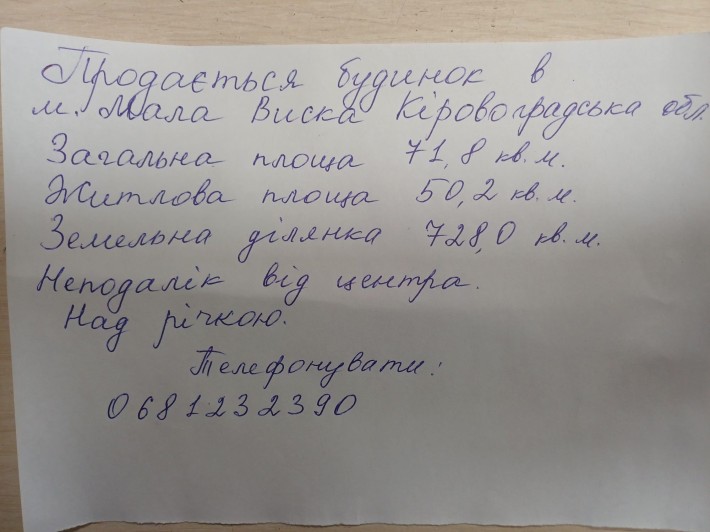 Продається будинок в
м. Мала Виска Кіровоградська обл.
Загальна площа 71,8 кв.м.
Житлова площа 50,2 кв.м.
Земельна ділянка 728,0 кв.м.
Неподалік від центра.
Над річкою.
Телефонувати:
0681232390